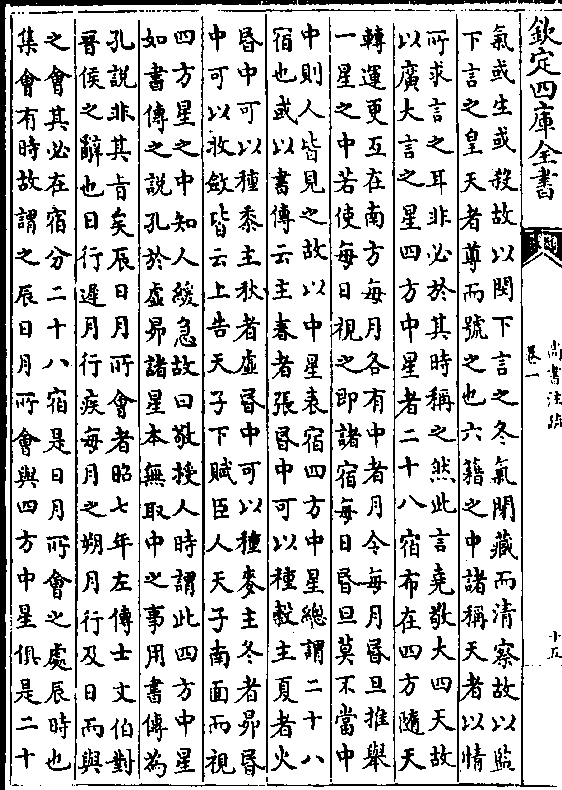 欽定四庫全書
尚書注疏
卷一
十五
氣或生或殺故以閔下言之冬氣閉藏而清察故以監
下言之皇天者尊而號之也六籍之中諸稱天者以情
所求言之耳非必於其時稱之然此言堯敬大四天故
以廣大言之星四方中星者二十八宿布在四方隨天
轉運更互在南方每月各有中者月令每月昏旦推舉
一星之中若使每日視之即諸宿每日昏旦莫不當中
中則人皆見之故以中星表宿四方中星總謂二十八
宿也或以書傳云主春者張昏中可以種穀主夏者火
昏中可以種黍主秋者虛昏中可以種麥主冬者昴昏
中可以收斂皆云上告天子下賦臣人天子南面而視
四方星之中知人緩急故曰敬授人時謂此四方中星
如書傳之說孔於虛昴諸星本無取中之事用書傳為
孔說非其旨矣辰日月所會者昭七年左傳士文伯對
晉侯之辭也日行遲月行疾每月之朔月行及日而與
之會其必在宿分二十八宿是日月所會之處辰時也
集會有時故謂之辰日月所會與四方中星俱是二十